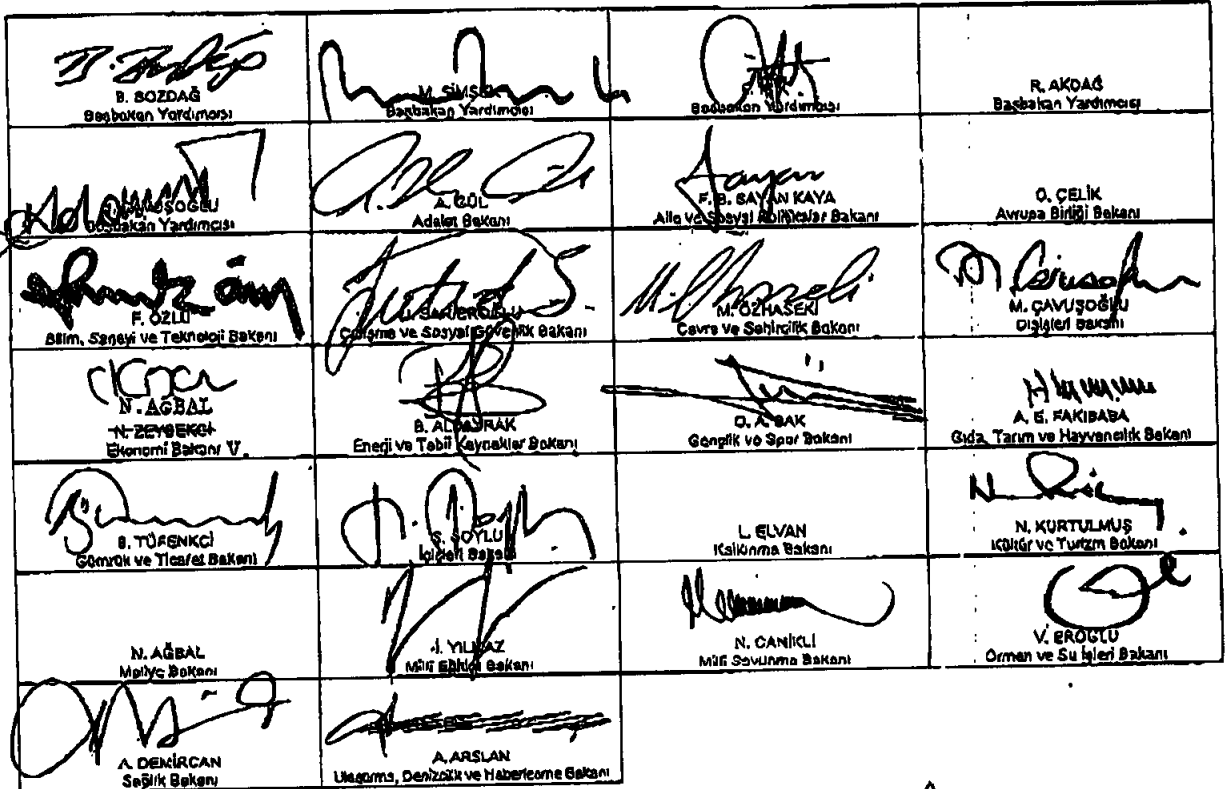 B. BOZDAĞ
Başbakan Yardımcısı
M. ŞİMŞEK
Başbakan Yardımcısı
Başbakan Yardımcısı
R. AKDAĞ
Başbakan Yardımcısı
Başbakan Yardımcısı
A. GÜL
Adalet Bakanı
F. B. SAYAN KAYA
Aile ve Sosyal Politikalar Bakanı
Ö. ÇELİK
Avrupa Birliği Bakanı
F. ÖZLÜ
Bilim, Sanayi ve Teknoloji Bakanı
Çalışma ve Sosyal Güvenlik Bakanı
M. ÖZHASEKİ
Çevre ve Şehircilik Bakanı
M. ÇAVUŞOĞLU
Dışişleri Bakanı
N. AĞBAL
N. ZEYBEKCİ
Ekonomi Bakanı V.
B. ALBAYRAK
Enerji ve Tabii Kaynaklar Bakanı
O. A. BAK
Gençlik ve Spor Bakanı
A. E. FAKIBABA
Gıda, Tarım ve Hayvancılık Bakanı
B. TÜFENKCİ
Gümrük ve Ticaret Bakanı
S. SOYLU
İçişleri Bakanı
L. ELVAN
Kalkınma Bakanı
N. KURTULMUŞ
Kültür ve Turizm Bakanı
N. AĞBAL
Maliye Bakanı
İ. YILMAZ
Milli Eğitim Bakanı
N. CANİKLİ
Milli Savunma Bakanı
V. EROĞLU
Orman ve Su İşleri Bakanı
A. DEMİRCAN
Sağlık Bakanı
A. ARSLAN
Ulaştırma, Denizcilik ve Haberleşme Bakanı